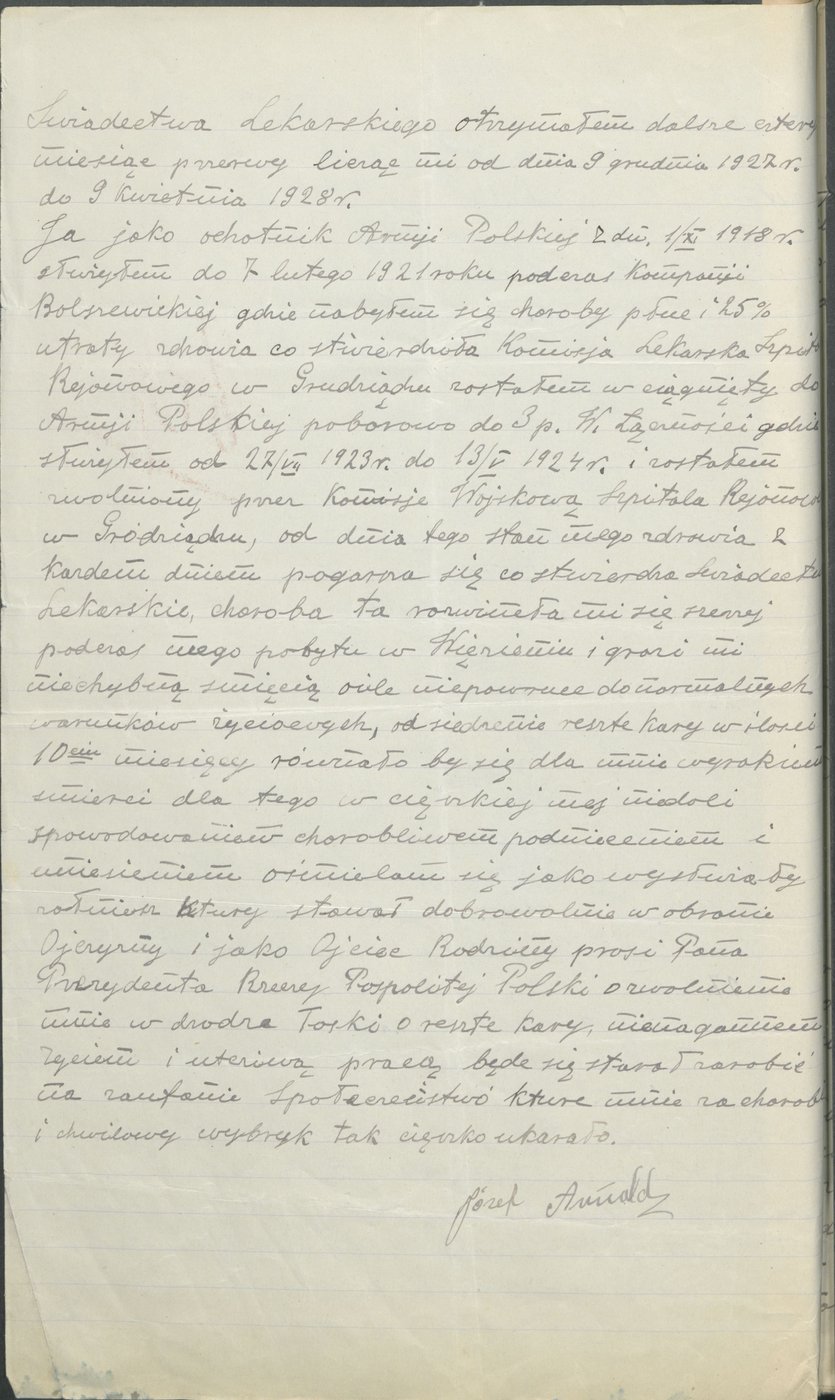 Swiadectwa Lekarskiego otrzymałem dalsze cztery
miesiąc przerwy licząc mi od dnia 9 grudnia 1927 r.
do 9 Kwietnia 1928 r.
Ja jako ochotnik Armji Polskiej z dn. 1/XI 1918 r.
służyłem do 7 lutego 1921 roku podczas Kompanji
Bolszewickiej gdzie nabyłem się choroby płuc i 25%
utraty zdrowia co stwierdziła Komisja Lekarska Szpit
Rejonowego w Grudziądzu zostałem w ciągnięty do
Armji Polskiej poborowo do 3 p. W. Łączności gdzie
służyłem od 27/VII 1923 r. do 13/V 1924 r. i zostałem
zwolniony przez Komisje Wojskową Szpitala Rejonow
w Gródziądzu, od dnia tego stan mego zdrowia z
Kazdem dniem pogarsza się co stwierdza Swiadectw
Lekarskie, choroba ta rozwineła mi się szerzej
podczas mego pobytu w Więzieniu i grozi mi
niechybną smięcią oile niepowruce do normalnych
warunków życiowych, od siedzenie reszte kary w ilosci
10ciu miesięcy równało by się dla mnie wyrokiem
smierci dla tego w ciężkiej mej niedoli
spowodowaniem chorobliwem podnieceniem i
uniesieniem ośmielam się jako wysłużały
żołnierz Ktury stawał dobrowolnie w obronie
Ojczyzny i jako Ojciec Rodziny prosi Pana
Prezydenta Rzeczej Pospolitej Polski o zwolnienie
mnie w drodze łaski o reszte kary, nienagannem
życiem i uczciwą pracą będe się starał zarobić
na zaufanie Społeczeństwó kture mnie za chorob
i chwilowy wybryk tak ciężko ukarało.
Józef Arnold